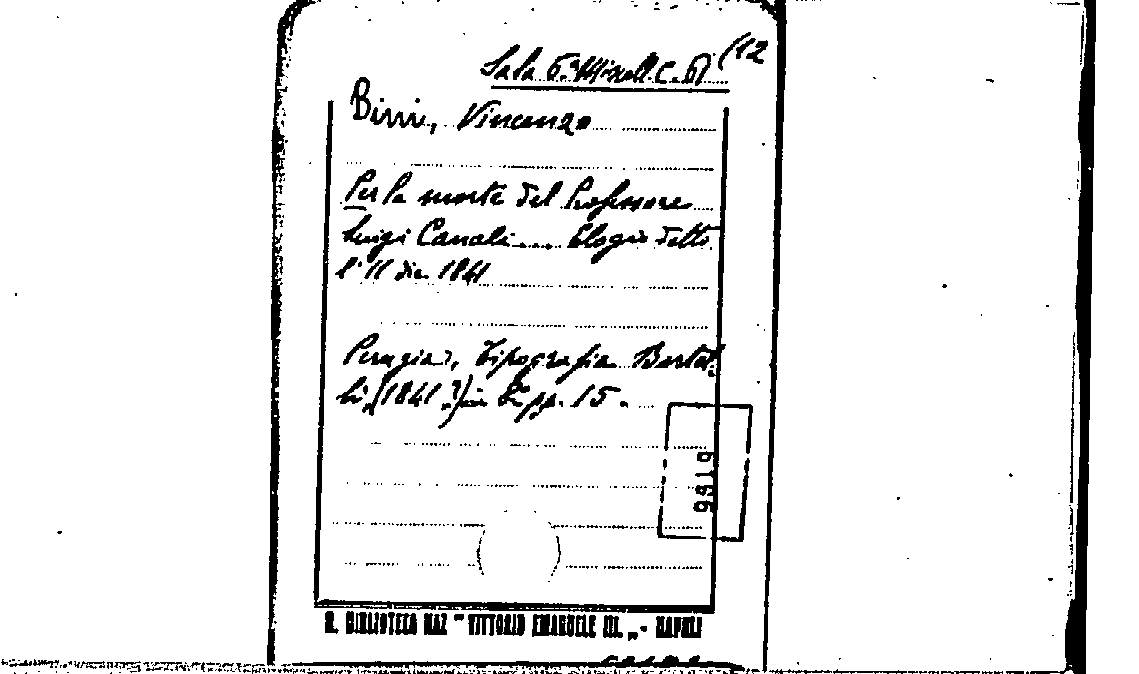 Sala 6ª Miscell. C. 61 (12
Bini, Vincenzo
Per la morte del Professore
Luigi Canali... Elogio detto
l' 11 dic. 1841
Perugia, Tipografia Bartel-
li, (1841?) in 8º pp. 15.
R. BIBLIOTECA NAZ "VITTORIO EMANUELE III." - NAPOLI